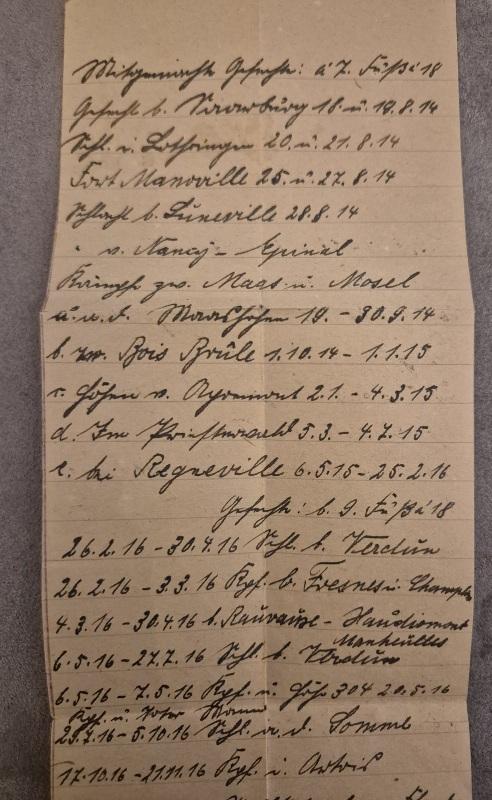 Mitgemachte Gefechte: a 7. Fußa 18
Gefecht b. Saarburg 18. u. 19.8.14
Schl. i. Lothringen 20. u. 21.8.14
Fort Manoville 25. u. 27.8.14
Schlacht b. Luneville 28.8.14
" v. Nancy - Epinal
Kämpfe zw. Maas u. Mosel
a. a. d. Maashöhen 19. - 30.9.14
b. Bois Brûle 1.10.14 - 1.1.15
c. Höhen v. Apremont 2.1. - 4.3.15
d. Im Priesterwald 5.3. - 4.7.15
e. bei Regneville 6.5.15 - 25.2.16
Gefechte: b. 9. Fußa 18
26.2.16 - 30.4.16 Schl. b. Verdun
26.2.16 - 3.3.16 Kpf. b. Fresnes u. Champlon
4.3.16 - 30.4.16 b. - Haudiomont
Manheulles
6.5.16 - 27.7.16 Schl. b. Verdun
6.5.16 - 7.5.16 Kpf. u. Höhe 304 20.5.16
Kpf. u. Toter Mann
25.7.16 - 5.10.16 Schl. a. d. Somme
17.10.16 - 21.11.16 Kpf. i. Artois